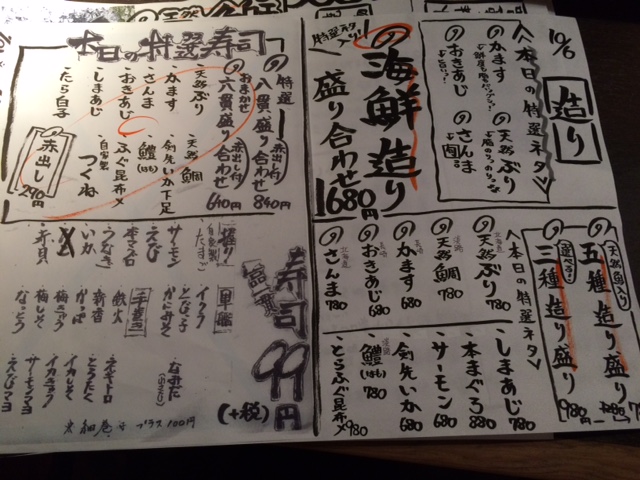 10/6
造り
<本日の特選ネタ>
かます
天然ぶり
おきあじ
さんま
特選ネタ入り!
の海鮮造り
盛り合わせ
1680円
天然魚入り
の五種造り盛り
選べる!
の三種造り盛り
980円
<本日の特選ネタ>
の天然ぶり 780
淡路
の天然鯛 780
の かます 680
の おきあじ 680
北海道
の さんま 780
・しまあじ 780
・本まぐろ 880
・サーモン 680
・剣先いか 680
淡路
・鱧(はも) 780
・とらふぐ昆布〆 980
本日の特選寿司
特選
の 八貫盛り合わせ 赤出し付 840円
おまかせ
の 六貫盛り合わせ 赤出し付 640円
・天然ぶり
・天然鯛
・かます
・剣先いか下足
・さんま
・鱧(はも)
・おきあじ
・ふぐ昆布〆
・しまあじ
自家製
・つくね
・たら白子
赤出し 290円
寿司
一貫
99円
(+税)
握り
自家製
・たまご
・サーモン
・えび
・本マグロ
・うなぎ
・いか
・赤貝
軍艦
・イクラ
・とびこ
・かにみそ
手巻き
・鉄火
・新香
・かっぱ
・梅きゅう
・梅しそ
・なっとう
・なみだ
(わさび)
・ネギトロ
・とろたく
・イカしそ
・イカキュウ
・サーモンマヨ
・えびマヨ
※細巻きプラス100円